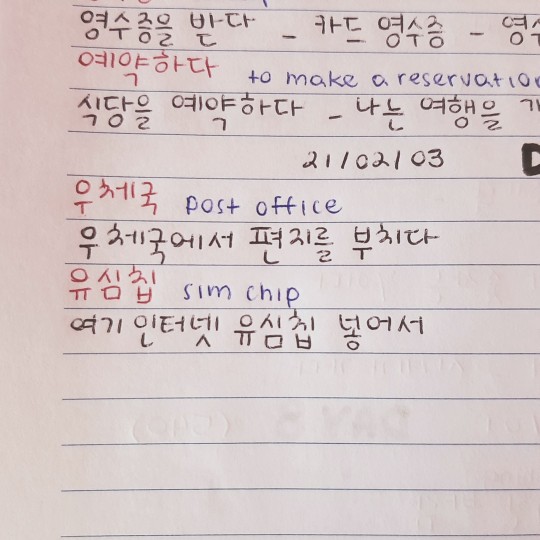 영수증을 받다 - 카드 영수증 -
예약하다 to make a reservation
식당을 예약하다 - 나는 여행을
21/02/03
우체국 post office
우체국에서 편지를 부치다
유심칩 sim chip
여기 인터넷 유심칩 넣어서